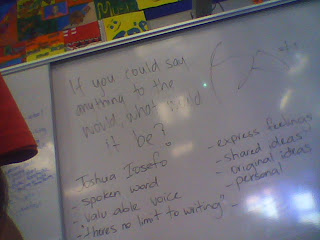 If you could say
anything to the
world, what would
it be?
Joshua Iosefo
- spoken word
- valuable voice
- "there's no limit to writing"
- express feelings
- shared ideas
- original ideas
- personal